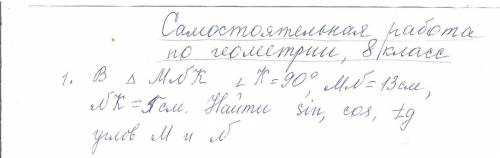 Самостоятельная работа
по геометрии, 8 класс
1. В △ MNK ∠K=90°, MN=13см,
NK=5см. Найти sin, cos, tg
углов M и N